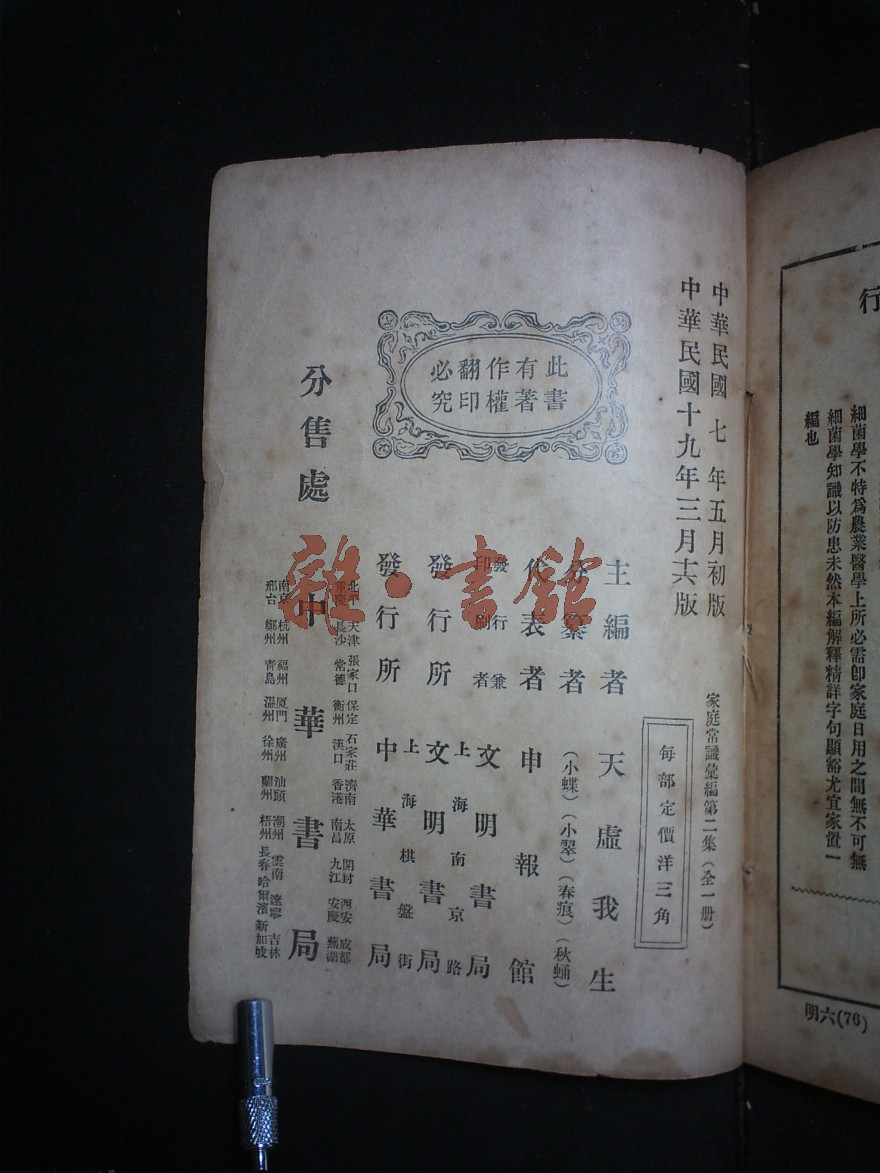 行
細菌學不特爲農業醫學上所必需卽家庭日用之間無不可無
細菌學知識以防患未然本編解釋精詳字句顯豁尤宜家置一
編也
明六(76)
中華民國七年五月初版
中華民國十九年三月十六版
家庭常識彙編第二集(全一册)
每部定價洋三角
此書
有著
作權
翻印
必究
主編者 天虛我生
分纂者 (小蝶)(小翠)(春痕)(秋蛹)
代表者 申報館
發行兼
印刷者 文明書局
上海南京路
發行所 文明書局
上海棋盤街
發行所 中華書局
分售處
北平 天津 張家口 保定 石家莊 濟南 太原 開封 西安 成都
重慶 長沙 常德 衡州 漢口 香港 南昌 九江 安慶 蕪湖
中華書局
南京 杭州 福州 厦門 廣州 汕頭 潮州 雲南 遼寧 吉林
邢台 鄭州 青島 溫州 徐州 蘭州 梧州 長春 哈爾濱 新加坡
雜·書館